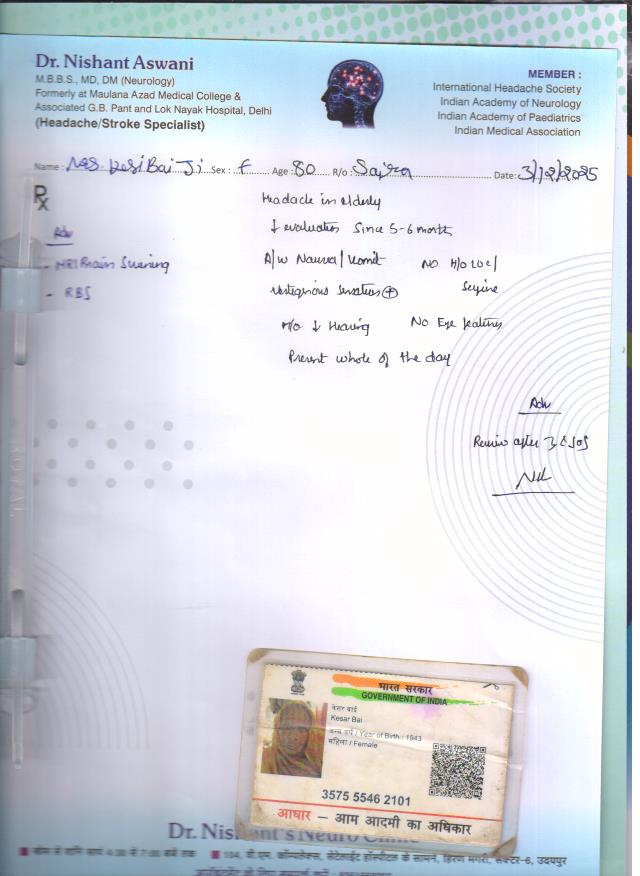 Dr. Nishant Aswani
M.B.B.S., MD, DM (Neurology)
Formerly at Maulana Azad Medical College &
Associated G.B. Pant and Lok Nayak Hospital, Delhi
(Headache/Stroke Specialist)
MEMBER :
International Headache Society
Indian Academy of Neurology
Indian Academy of Paediatrics
Indian Medical Association
Name : Bai Ji Sex : F Age : 80 R/o : Date: 3/12/2025
Rx
Adv
- MRI Brain
- RBS
Headache in elderly
↓ evaluation Since 5-6 month
A/w Nausea / Vomit No H/o LOC/
⊕
H/o ↓ Hearing No Eye
Present whole of the day
Adv
Review after SOS
भारत सरकार
GOVERNMENT OF INDIA
केसर बाई
Kesar Bai
जन्म वर्ष / Year of Birth : 1943
महिला / Female
3575 5546 2101
आधार – आम आदमी का अधिकार
Dr. Nishant's Neuro Clinic
104, वी.एम. कॉम्पलेक्स, सेटेलाईट हॉस्पीटल के सामने, हिरण मगरी, सेक्टर-6, उदयपुर